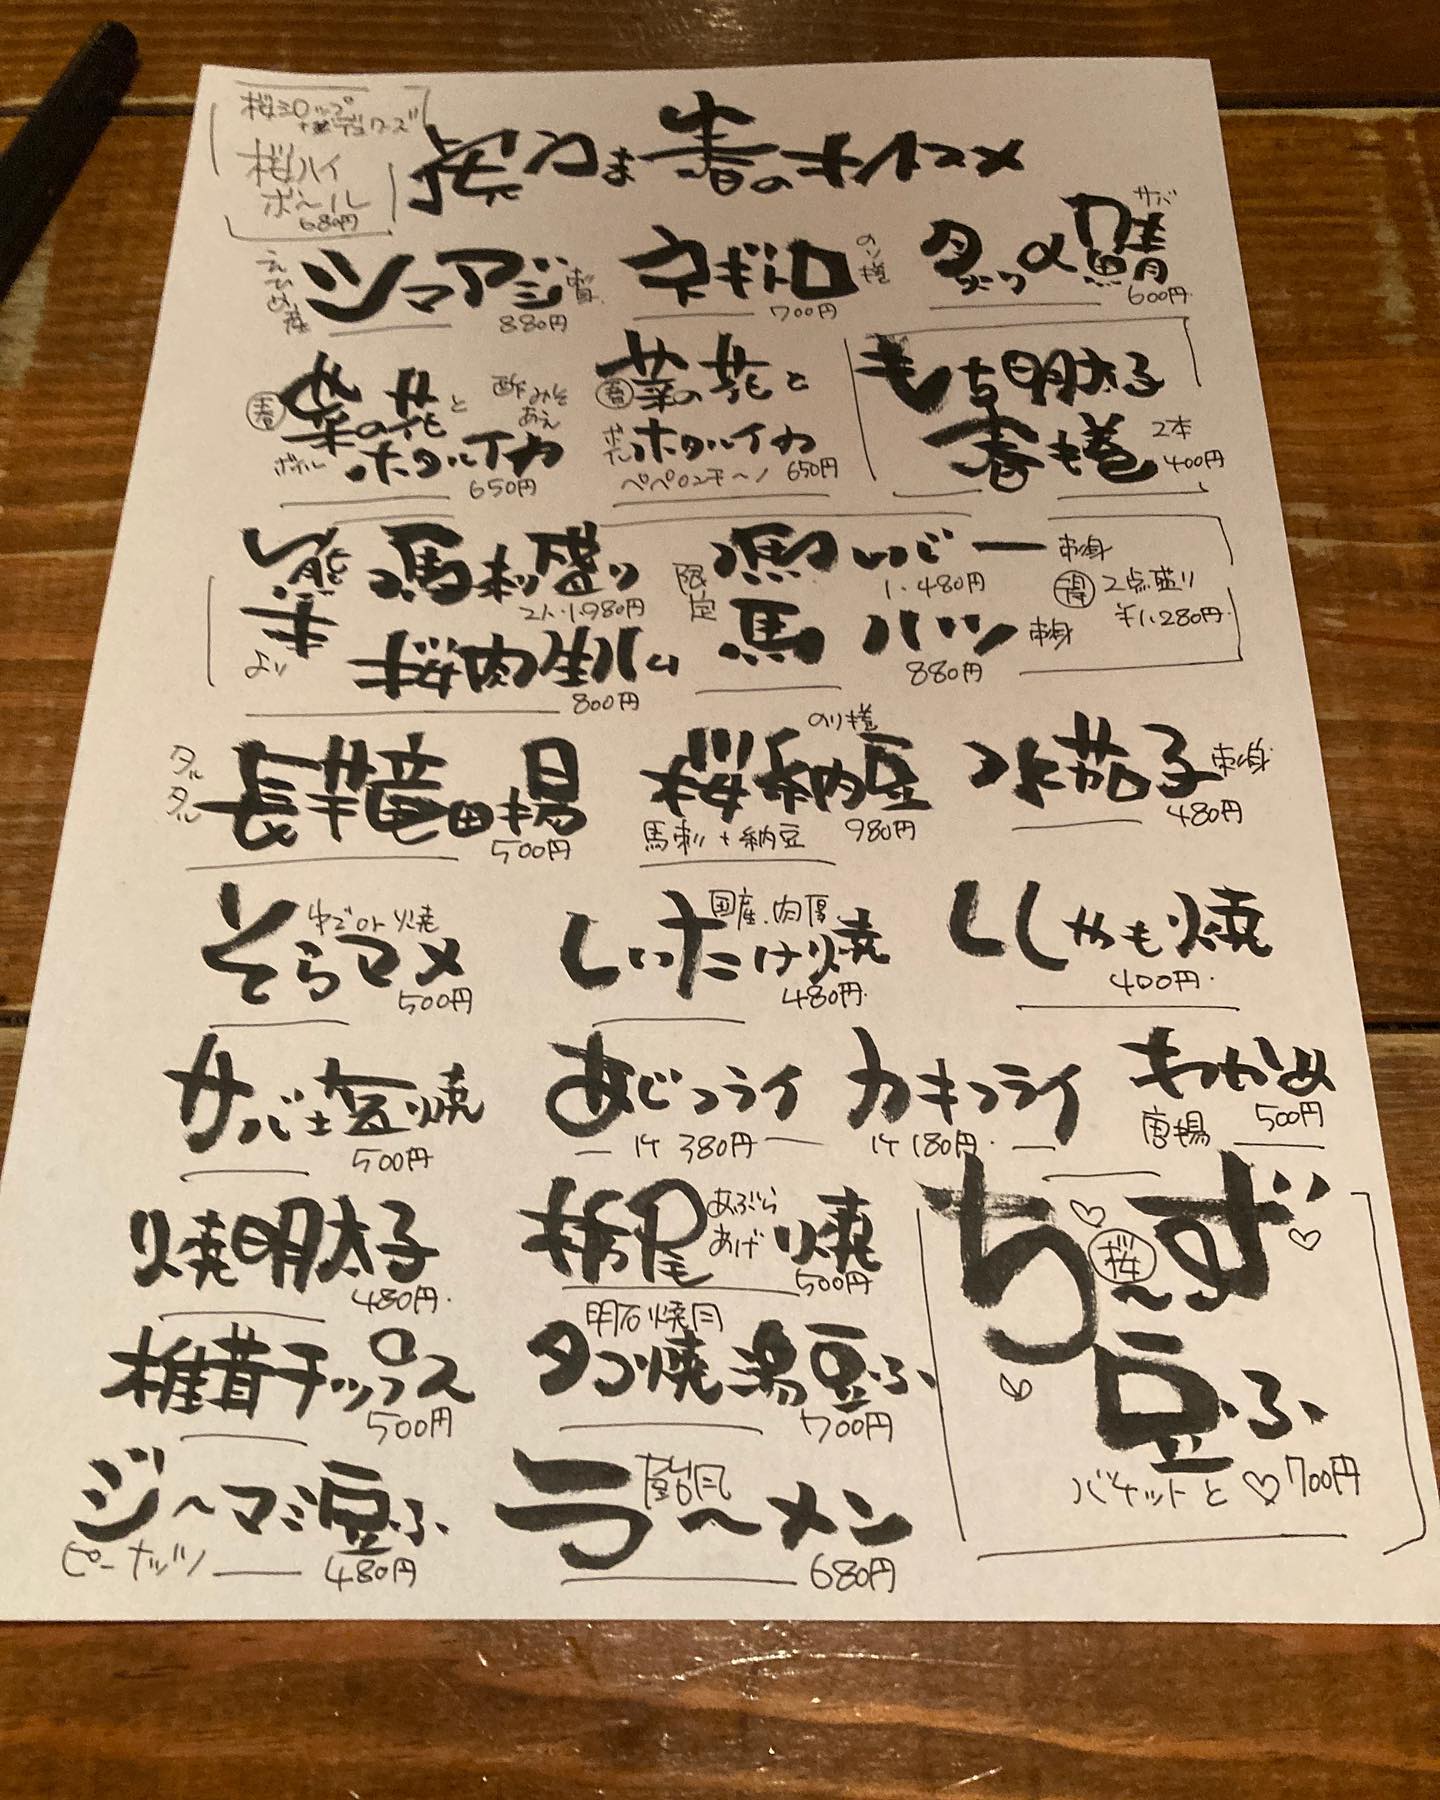 桜シロップ
桜ハイ
ボール
680円
春のオススメ
えひめ産
シマアジ 刺身
880円
ネギトロ
のり巻
700円
〆鯖
サバ
600円
春 菜の花と 酢みそあえ
ボイル ホタルイカ
650円
春 菜の花と
ボイル ホタルイカ
ペペロンチーノ 650円
もち明太子
春巻
2本
400円
熊本より
馬刺し盛り
2人.1.980円
桜肉生ハム
800円
限定
馬レバー 刺身
1.480円
馬ハツ 刺身
880円
得 2点盛り
¥1.280円
タルタル
長芋竜田揚
500円
のり巻
桜納豆
馬刺し+納豆 980円
水茄子 刺身
480円
そらマメ
ゆでor焼
500円
国産.肉厚
しいたけ焼
480円
ししゃも焼
400円
サバ塩焼
500円
あじフライ
1ケ 380円
カキフライ
1ケ 180円
わかめ
唐揚 500円
焼明太子
480円
栃尾 あぶらあげ 焼
500円
椎茸チップス
500円
明石焼風
タコ焼湯豆ふ
700円
ジーマミ豆ふ
ピーナッツ 480円
ラーメン
680円
桜
ち〜ず
豆ふ
バケットと 700円